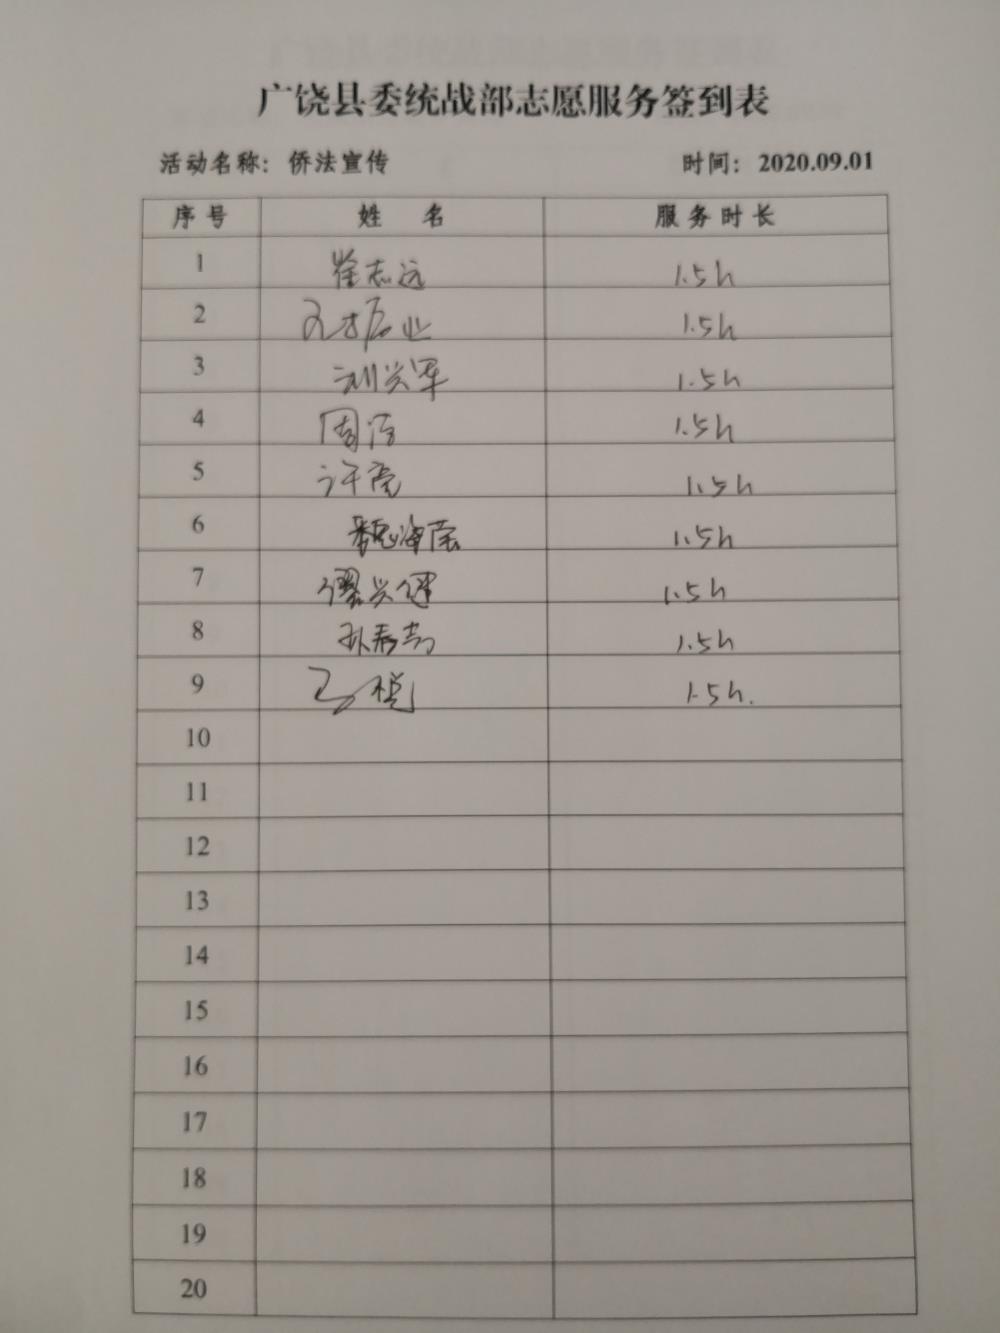 广饶县委统战部志愿服务签到表
活动名称：侨法宣传 时间：2020.09.01
序号 姓 名 服务时长
1 崔志远 1.5h
2 1.5h
3 刘兴军 1.5h
4 周浩 1.5h
5 许亮 1.5h
6 魏海荣 1.5h
7 1.5h
8 1.5h
9 1.5h.
10
11
12
13
14
15
16
17
18
19
20